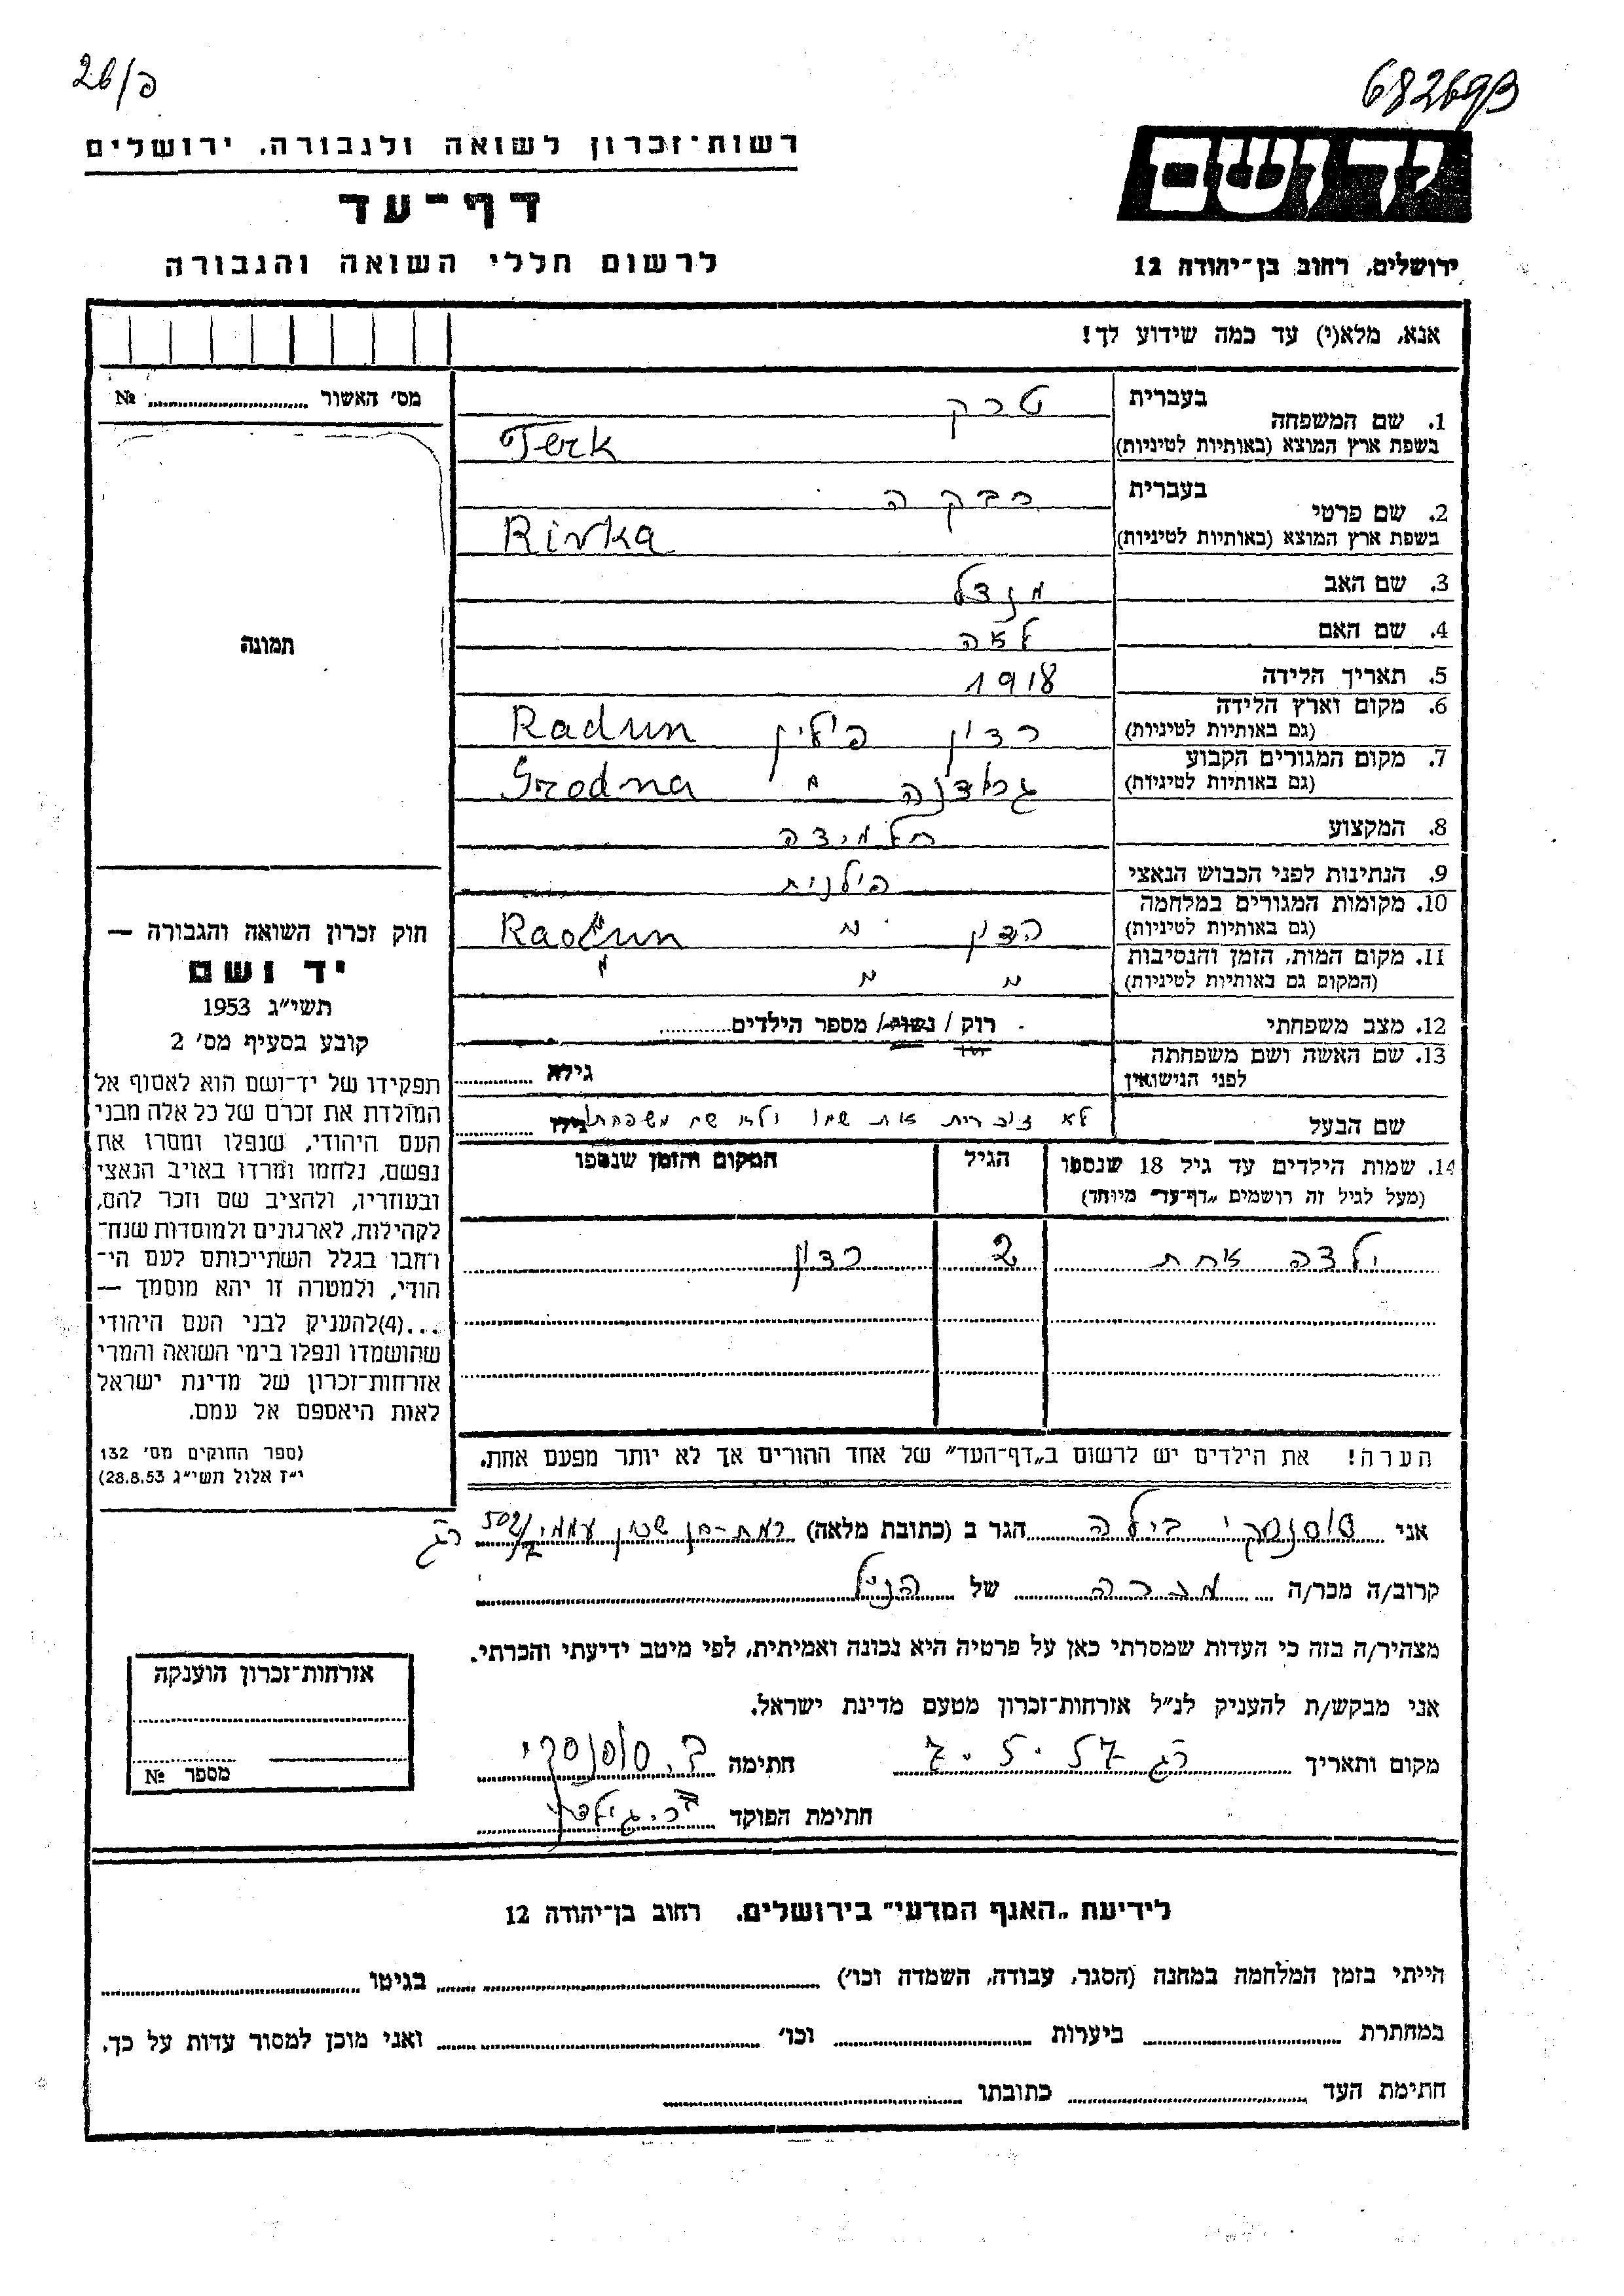 682693
26/פ
יד ושם
רשות־זכרון לשואה ולגבורה, ירושלים
דף־עד
לרשום חללי השואה והגבורה
ירושלים, רחוב בן־יהודה 12
אנא, מלא(י) עד כמה שידוע לך!
מס׳ האשור № 
1. שם המשפחה
בעברית טרק
בשפת ארץ המוצא (באותיות לטיניות) Terk
2. שם פרטי
בעברית רבקה
בשפת ארץ המוצא (באותיות לטיניות) Rivka
3. שם האב מנדל
4. שם האם לאה
5. תאריך הלידה 1918
6. מקום וארץ הלידה
(גם באותיות לטיניות) רדון פולין Radun
7. מקום המגורים הקבוע
(גם באותיות לטיניות) גרודנה " Grodna
8. המקצוע תלמידה
9. הנתינות לפני הכבוש הנאצי פולנית
10. מקומות המגורים במלחמה
(גם באותיות לטיניות) רדון " Radun
11. מקום המות, הזמן והנסיבות
(המקום גם באותיות לטיניות) " " "
12. מצב משפחתי רוק / נשוי / מספר הילדים
13. שם האשה ושם משפחתה
לפני הנישואין גילה
שם הבעל לא זוכרת את שמו ולא שם משפחתו גילו
14. שמות הילדים עד גיל 18 שנספו
(מעל לגיל זה רושמים „דף־עד״ מיוחד)
הגיל
המקום והזמן שנספו
ילדה אחת 2 רדון
הערה! את הילדים יש לרשום ב„דף־העד״ של אחד ההורים אך לא יותר מפעם אחת.
תמונה
חוק זכרון השואה והגבורה —
יד ושם
תשי״ג 1953
קובע בסעיף מס׳ 2
תפקידו של יד־ושם הוא לאסוף אל
המולדת את זכרם של כל אלה מבני
העם היהודי, שנפלו ומסרו את
נפשם, נלחמו ומרדו באויב הנאצי
ובעוזריו, ולהציב שם וזכר להם,
לקהילות, לארגונים ולמוסדות שנח־
רחבו בגלל השתייכותם לעם הי־
הודי, ולמטרה זו יהא מוסמך —
...(4)להעניק לבני העם היהודי
שהושמדו ונפלו בימי השואה והמרי
אזרחות־זכרון של מדינת ישראל
לאות היאספם אל עמם.
(ספר החוקים מס׳ 132
י״ז אלול תשי״ג 28.8.53)
אני סוסנסקי בילה הגר ב (כתובת מלאה) רמת־חן שכון עממי 502/7 רג
קרוב/ה מכר/ה מכרה של הנ״ל
מצהיר/ה בזה כי העדות שמסרתי כאן על פרטיה היא נכונה ואמיתית, לפי מיטב ידיעתי והכרתי.
אני מבקש/ת להעניק לנ״ל אזרחות־זכרון מטעם מדינת ישראל.
מקום ותאריך רג 7.5.57 חתימה ב. סוסנסקי
חתימת הפוקד
אזרחות־זכרון הוענקה
מספר №
לידיעת „האגף המדעי״ בירושלים, רחוב בן־יהודה 12
הייתי בזמן המלחמה במחנה (הסגר, עבודה, השמדה וכו׳) בגיטו
במחתרת ביערות וכו׳ ואני מוכן למסור עדות על כך.
חתימת העד כתובתו